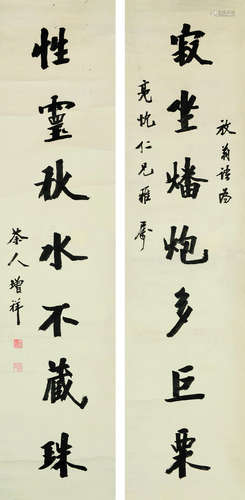 放翁為
寂坐燔炮多巨栗
亮忱仁兄雅屬
性靈秋水不藏珠
茶人增祥